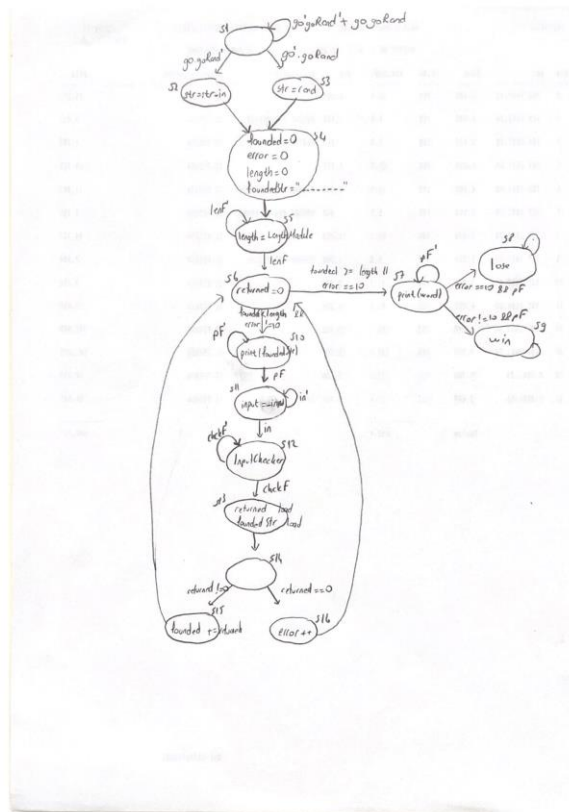 S1
go'goRand' + go.goRand
go.goRand'
go'.goRand
S2
str=strin
S3
str=rand
S4
founded=0
error=0
length=0
foundedStr="---------"
lenF'
S5
length=LengthModule
lenF
S6
returned=0
founded >= length ||
error==10
pF'
S7
print(word)
S8
lose
error==10 && pF
error!=10 && pF
S9
win
founded<length &&
error!=10
pF'
S10
print(foundedStr)
pF
S11
in'
in
chckF'
S12
InputChecker
chckF
S13
returned load
foundedStr load
S14
returned !=0
returned==0
S15
founded += returned
S16
error++